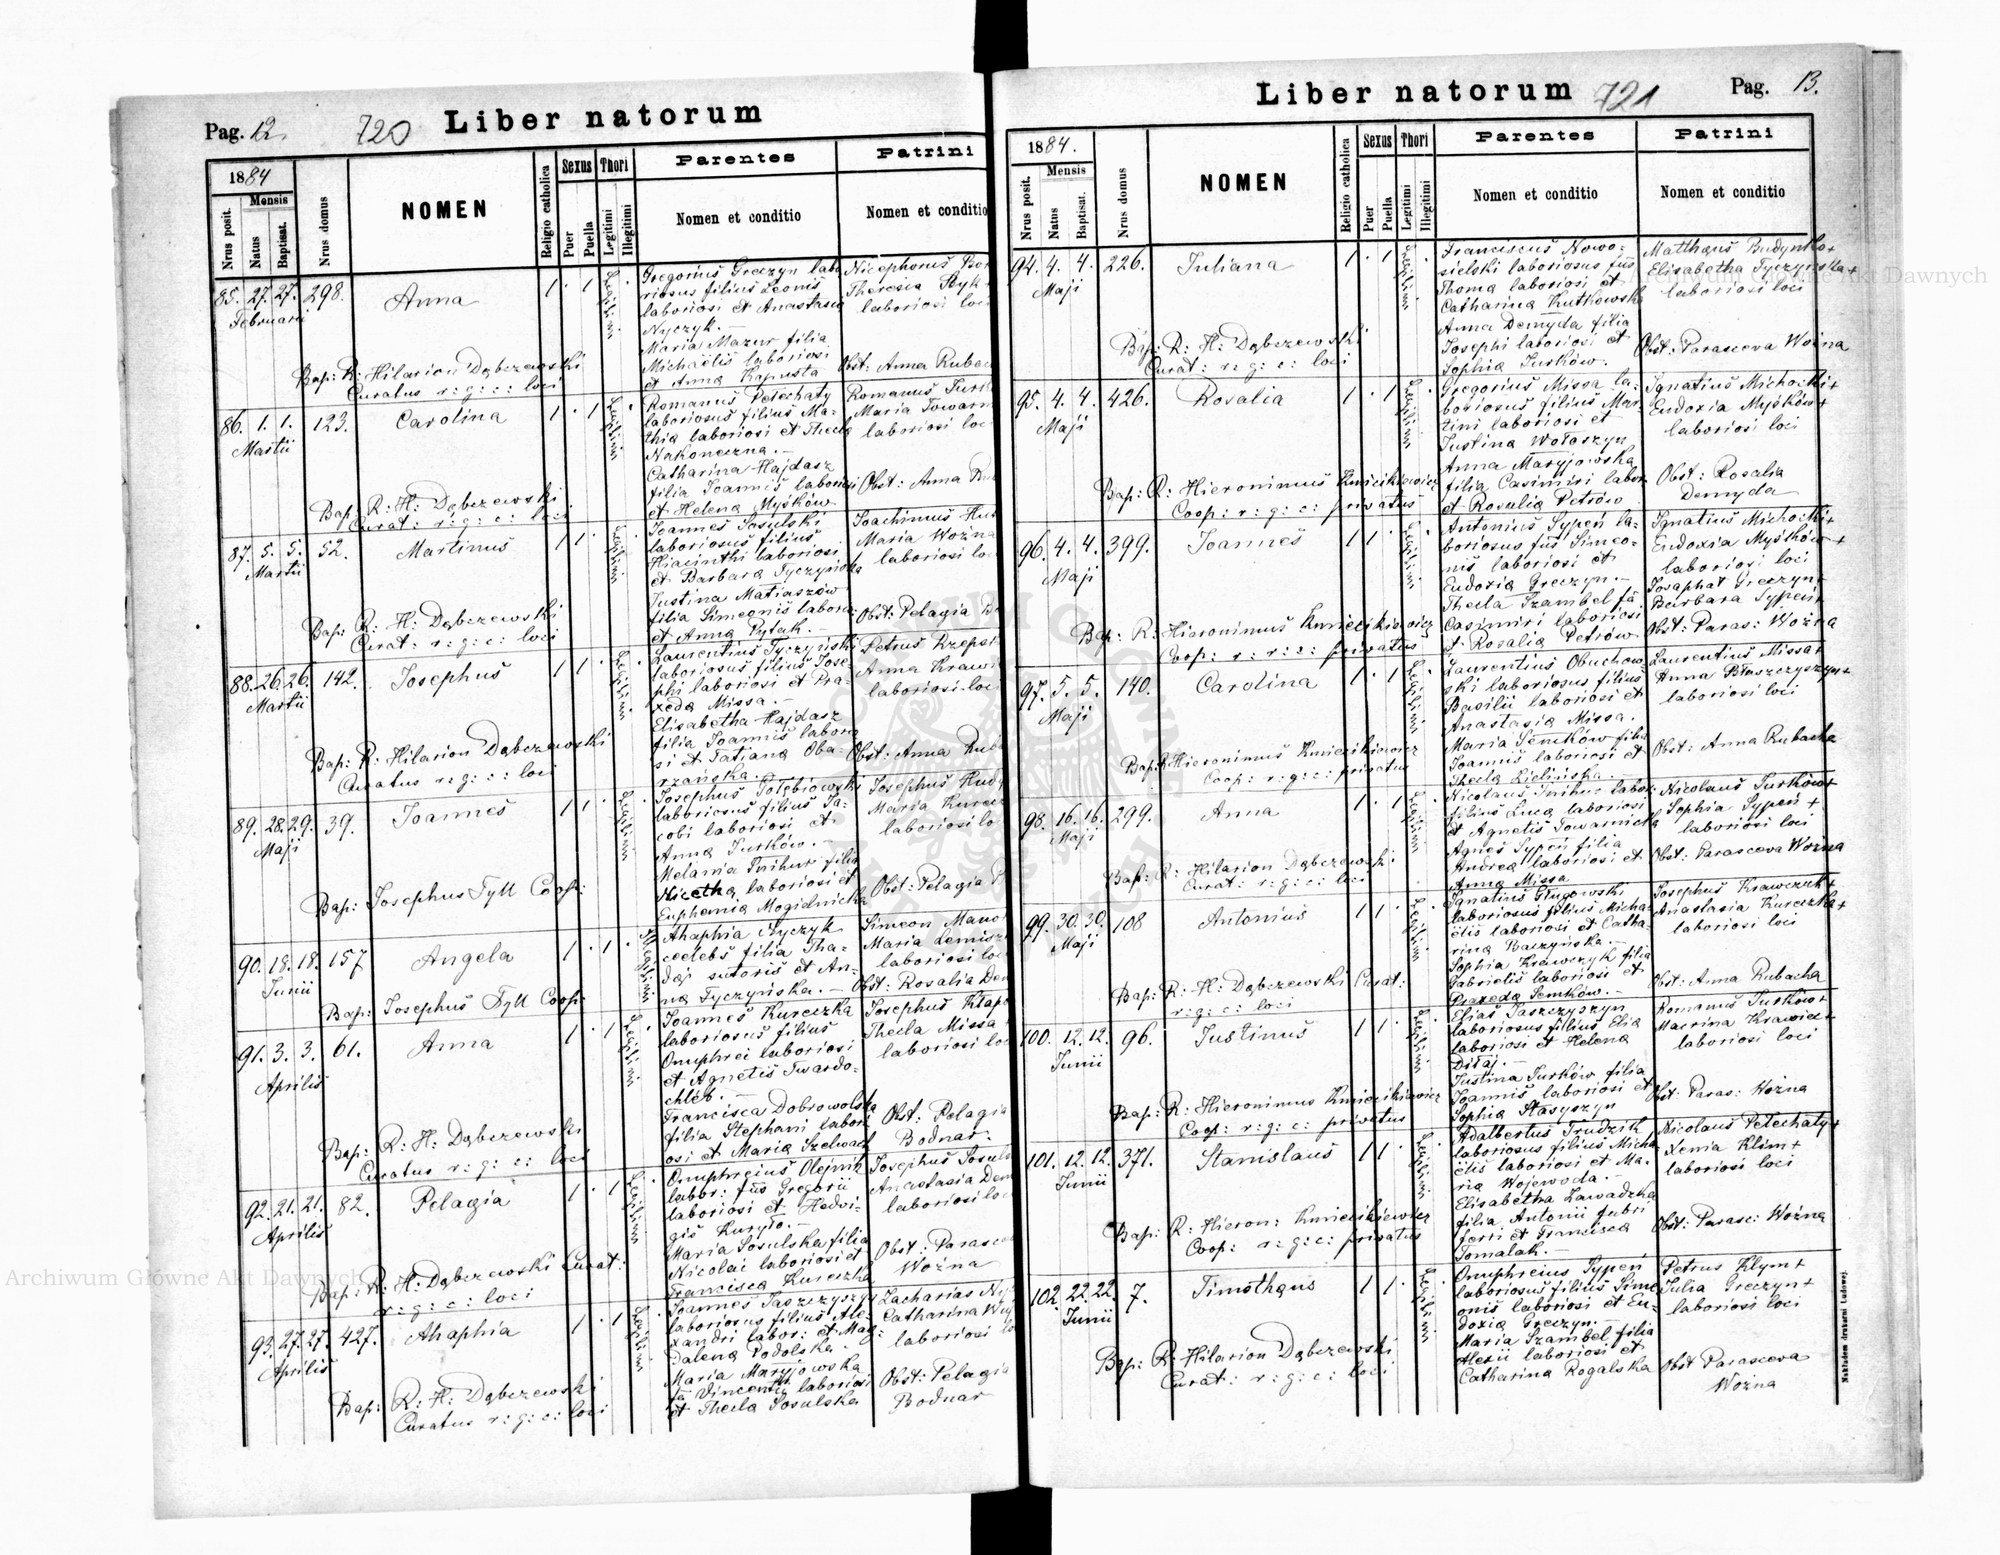 Pag. 12.
720
Liber natorum
1884
Nrus posit.
Mensis
Natus
Baptisat.
Nrus domus
NOMEN
Religio catholica
Sexus
Puer
Puella
Thori
Legitimi
Illegitimi
Parentes
Nomen et conditio
Patrini
Nomen et conditio
85. 27. 27. 298.
Februarii
Anna
Bap: R: Hilarion Dąbczewski
Curatus r: g: c: loci
Gregorius Greczyn labo
riosus filius Leonis
laboriosi et Anastasia
Nyczyk. —
Maria Mazur filia
Michaëlis laboriosi
et Anna Kapusta
Nicephorus
Theresia
laboriosi loci
Obst: Anna
86. 1. 1. 123.
Martii
Carolina
Bap: R: H: Dąbczewski
Curat: r: g: c: loci
Romanus Petechaty
laboriosus filius Ma-
thia laboriosi et Thecla
Nakoneczna. —
Catharina Hajdasz
filia Joannis laboriosi
et Helena Myśków
Romanus
Maria
laboriosi
Obst: Anna
87. 5. 5. 52.
Martii
Martinus
Bap: R: H: Dąbczewski
Curat: r: g: c: loci
Joannes Sosulski
laboriosus filius
Hiacinthi laboriosi
et Barbara Tyczyńska
Justina Matiaszów
filia Simeonis labori
et Anna Pytak. —
Joachimus
Maria Woźna
laboriosi
Obst: Pelagia
88. 26. 26. 142.
Martii
Josephus
Bap: R: Hilarion Dąbczewski
Curatus r: g: c: loci
Laurentius Tyczyński
laboriosus filius Jose-
phi laboriosi et Pra-
xeda Missa. —
Elisabetha Hajdasz
filia Joannis laborio
si et Tatiana Oba-
rzańska.
Petrus
Anna
laboriosi loci
Obst: Anna
89. 28. 29. 39.
Maji
Joannes
Bap: Josephus Tyll Coop:
Josephus Gołębiowski
laboriosus filius Ja-
cobi laboriosi et
Anna Jurków. —
Melania filia
Nicetha laboriosi et
Euphemia Mogidnicka
Josephus
Maria
laboriosi
Obst: Pelagia
90. 18. 18. 157
Junii
Angela
Bap: Josephus Tyll Coop:
Ahaphia Nyczyk
coelebs filia Tha-
daj sutoris et An-
na Tyczyńska. —
Simeon
Maria
laboriosi
Obst: Rosalia
91. 3. 3. 61.
Aprilis
Anna
Bap: R: H: Dąbczewski
Curatus r: g: c: loci
Joannes Kureczka
laboriosus filius
Onuphrei laboriosi
et Agnetis Twardo-
chleb. —
Francisca Dobrowolska
filia Stephani labori
osi et Maria Szelwach
Josephus
Thecla Missa
laboriosi
Obst: Pelagia
Bodnar.
92. 21. 21. 82.
Aprilis
Pelagia
Bap: R: H: Dąbczewski Curat:
r: g: c: loci
Onuphreius Olejnik
labor: fus Gregorii
laboriosi et Hedwi-
gis Kuryło. —
Maria Sosulska filia
Nicolai laboriosi et
Francisca Kureczka
Josephus
Anastasia
laboriosi loci
Obst:
Woźna
93. 27. 27. 427.
Aprilis
Ahaphia
Bap: R: H: Dąbczewski
Curatus r: g: c: loci
Joannes Jaszczyszyn
laboriosus filius Ale-
xandri labor: et Mag-
dalena Podolska.
Maria Maryjowska
fa Vincentii laboriosi
et Thecla Sosulska
Zacharias
Catharina
laboriosi
Obst: Pelagia
Bodnar
721
Liber natorum
Pag. 13.
1884.
Nrus posit.
Mensis
Natus
Baptisat.
Nrus domus
NOMEN
Religio catholica
Sexus
Puer
Puella
Thori
Legitimi
Illegitimi
Parentes
Nomen et conditio
Patrini
Nomen et conditio
94. 4. 4. 226.
Maji
Juliana
Bap: R: H: Dąbczewski
Curat: r: g: c: loci
Franciscus Nowo-
sielski laboriosus fus
Thoma laboriosi et
Catharina Rutkowska
Anna Demyda filia
Josephi laboriosi et
Sophia Jurków.
Matthaus +
Elisabetha Tyczyńska +
laboriosi loci
Obst: Parasceva Woźna
95. 4. 4. 426.
Maji
Rosalia
Bap: R: Hieronimus Kmicikiewicz
Coop: r: g: c: privatus
Gregorius Missa la-
boriosus filius Mar-
tini laboriosi et
Justina Wołoszyn
Anna Maryjowska
filia Casimiri labor
et Rosalia Petrów
Ignatius Michocki +
Eudoxia Myśków +
laboriosi loci
Obst: Rosalia
Demyda
96. 4. 4. 399.
Maji
Joannes
Bap: R: Hieronimus Kmicikiewicz
Coop: r: r: c: privatus
Antonius Sypeń la-
boriosus fus Simeo-
nis laboriosi et
Eudoxia Greczyn. —
Thecla Szambel fa
Casimiri laboriosi
et Rosalia Petrów
Ignatius Michocki +
Eudoxia Myśków +
laboriosi loci
Josaphat Greczyn +
Barbara Sypeń +
Obst: Paras: Woźna
97. 5. 5. 140.
Maji
Carolina
Bap: R Hieronimus Kmicikiewicz
Coop: r: g: c: privatus
Laurentius Obuchow-
ski laboriosus filius
Basilii laboriosi et
Anastasia Missa.
Maria Semków filia
Joannis laboriosi et
Thecla Zielińska.
Laurentius Missa +
Anna Błaszczyszyn +
laboriosi loci
Obst: Anna Rubacha
98. 16. 16. 299.
Maji
Anna
Bap: R: Hilarion Dąbczewski
Curat: r: g: c: loci
Nicolaus labor
filius Luca laboriosi
et Agnetis Towarnicka
Agnes Sypeń filia
Andrea laboriosi et
Anna Missa
Nicolaus Jurków +
Sophia Sypeń +
laboriosi loci
Obst: Parasceva Woźna
99. 30. 30. 108
Maji
Antonius
Bap: R: H: Dąbczewski Curat:
r: g: c: loci
Ignatius Długowski
laboriosus filius Micha-
ëlis laboriosi et Catha-
rina Baczyńska. —
Sophia Krawczyk filia
Gabrielis laboriosi et
Praxeda Semków. —
Josephus Krawczyk +
Anastasia Kureczka +
laboriosi loci
Obst: Anna Rubacha
100. 12. 12. 96.
Junii
Justinus
Bap: R: Hieronimus Kmicikiewicz
Coop: r: g: c: privatus
Elias Jaszczyszyn
laboriosus filius Elia
laboriosi et Helena
Ditaj. —
Justina Jurków filia
Joannis laboriosi et
Sophia Stasyszyn
Romanus Jurków +
Macrina Krawiec +
laboriosi loci
Obst: Paras: Woźna
101. 12. 12. 371.
Junii
Stanislaus
Bap: R: Hieron: Kmicikiewicz
Coop: r: g: c: privatus
Adalbertus Trudzik
laboriosus filius Micha-
ëlis laboriosi et Ma-
ria Wojewoda. —
Elisabetha Zawadzka
filia Antonii fabri
ferri et Francisca
Tomalak. —
Nicolaus Petechaty +
Xenia Klim +
laboriosi loci
Obst: Parasc: Woźna
102. 22. 22. 7.
Junii
Timothaus
Bap: R: Hilarion Dąbczewski
Curat: r: g: c: loci
Onuphreius Sypeń
laboriosus filius Sime-
onis laboriosi et Eu-
doxia Greczyn. —
Maria Szambel filia
Alexii laboriosi et
Catharina Rogalska
Petrus Klym +
Julia Greczyn +
laboriosi loci
Obst Parasceva
Woźna
Nakładem drukarni Ludowej.
Archiwum Główne Akt Dawnych
Archiwum Główne Akt Dawnych